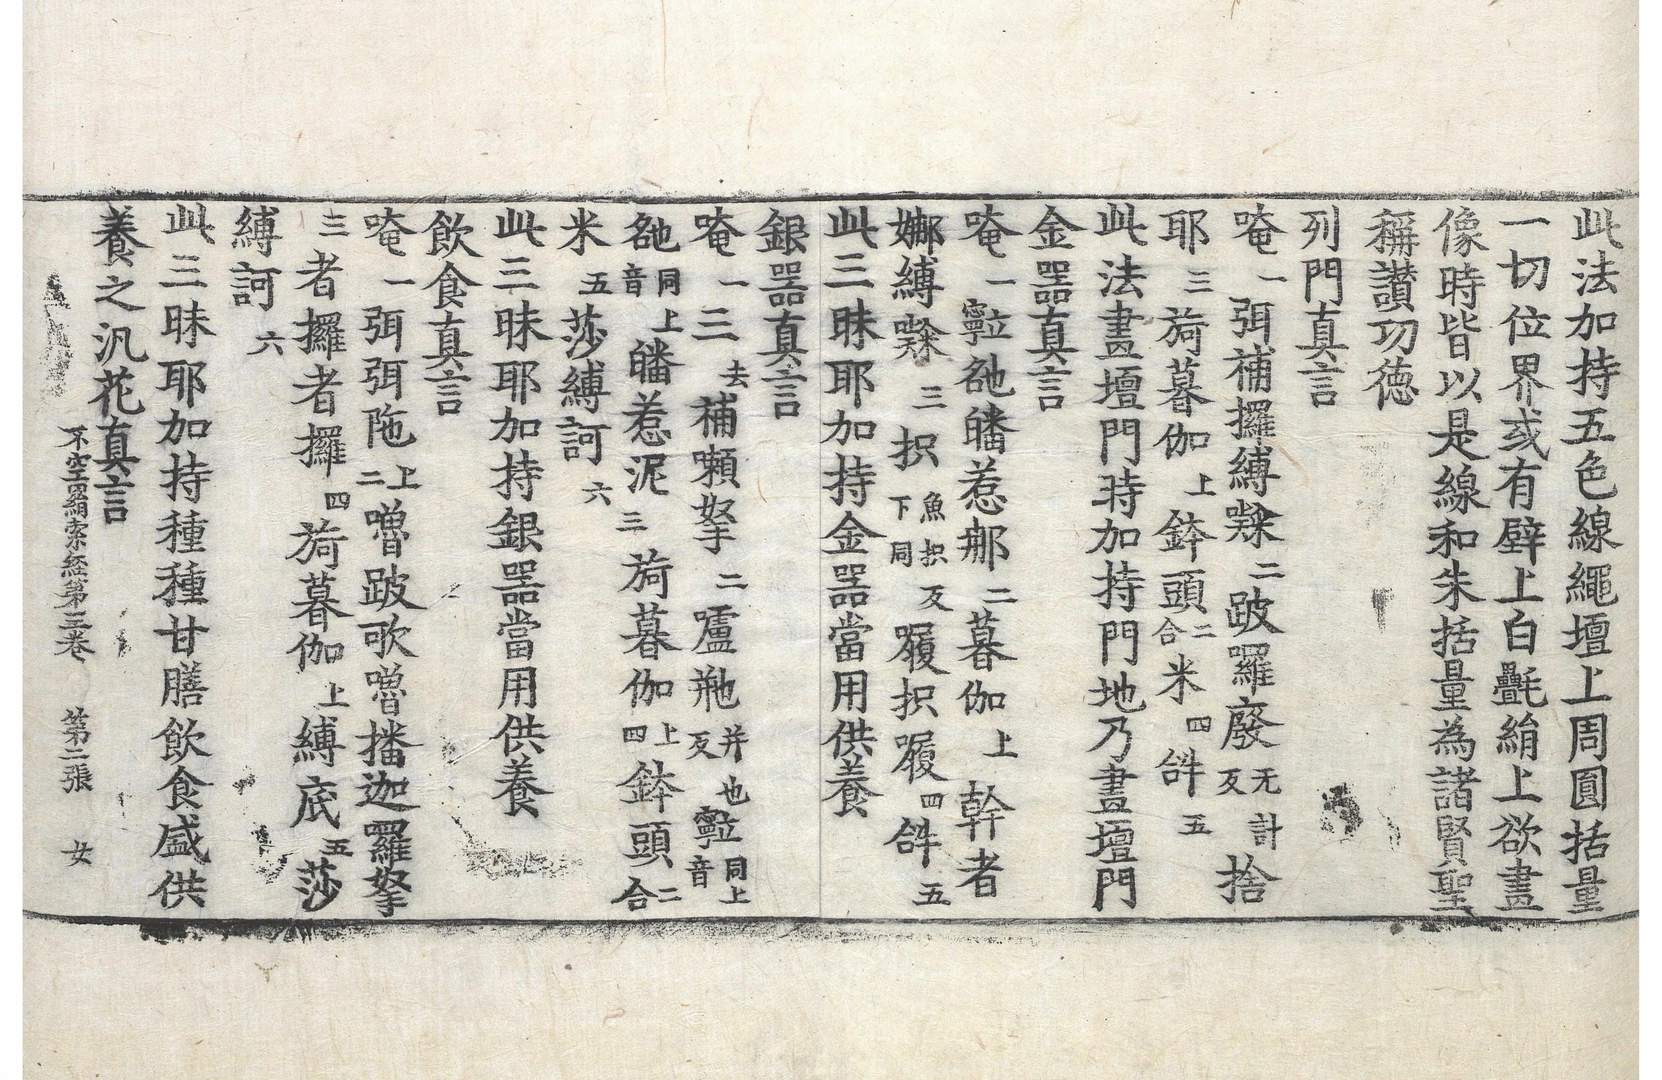 此法加持五色線繩壇上周圓括量
一切位界或有壁上白㲲絹上欲畫
像時皆以是線和朱括量為諸賢聖
稱讃功徳
列門真言
唵一弭補攞縛㘑二跛囉廢无計反捨
耶三旖暮伽上鉢頭二合米四𤙖五
此法畫壇門時加持門地乃畫壇門
金器真言
唵一𩆝㿳皤惹那二暮伽上幹者
娜縛㘑三抧魚抧反下同履抧履四𤙖五
此三昧耶加持金器當用供養
銀器真言
唵一三去補嚬拏二嚧㼥并也反𩆝同上音
㿳同上音皤惹泥三旖暮伽上四鉢頭二合
米五莎縛訶六
此三昧耶加持銀器當用供養
飲食真言
唵一弭弭陁上二嚕跛歌嚕播迦羅拏
三者攞者攞四旖暮伽上縛底五莎
縛訶六
此三昧耶加持種種甘膳飲食盛供
養之汎花真言
不空羂索経第三卷 第二張 女